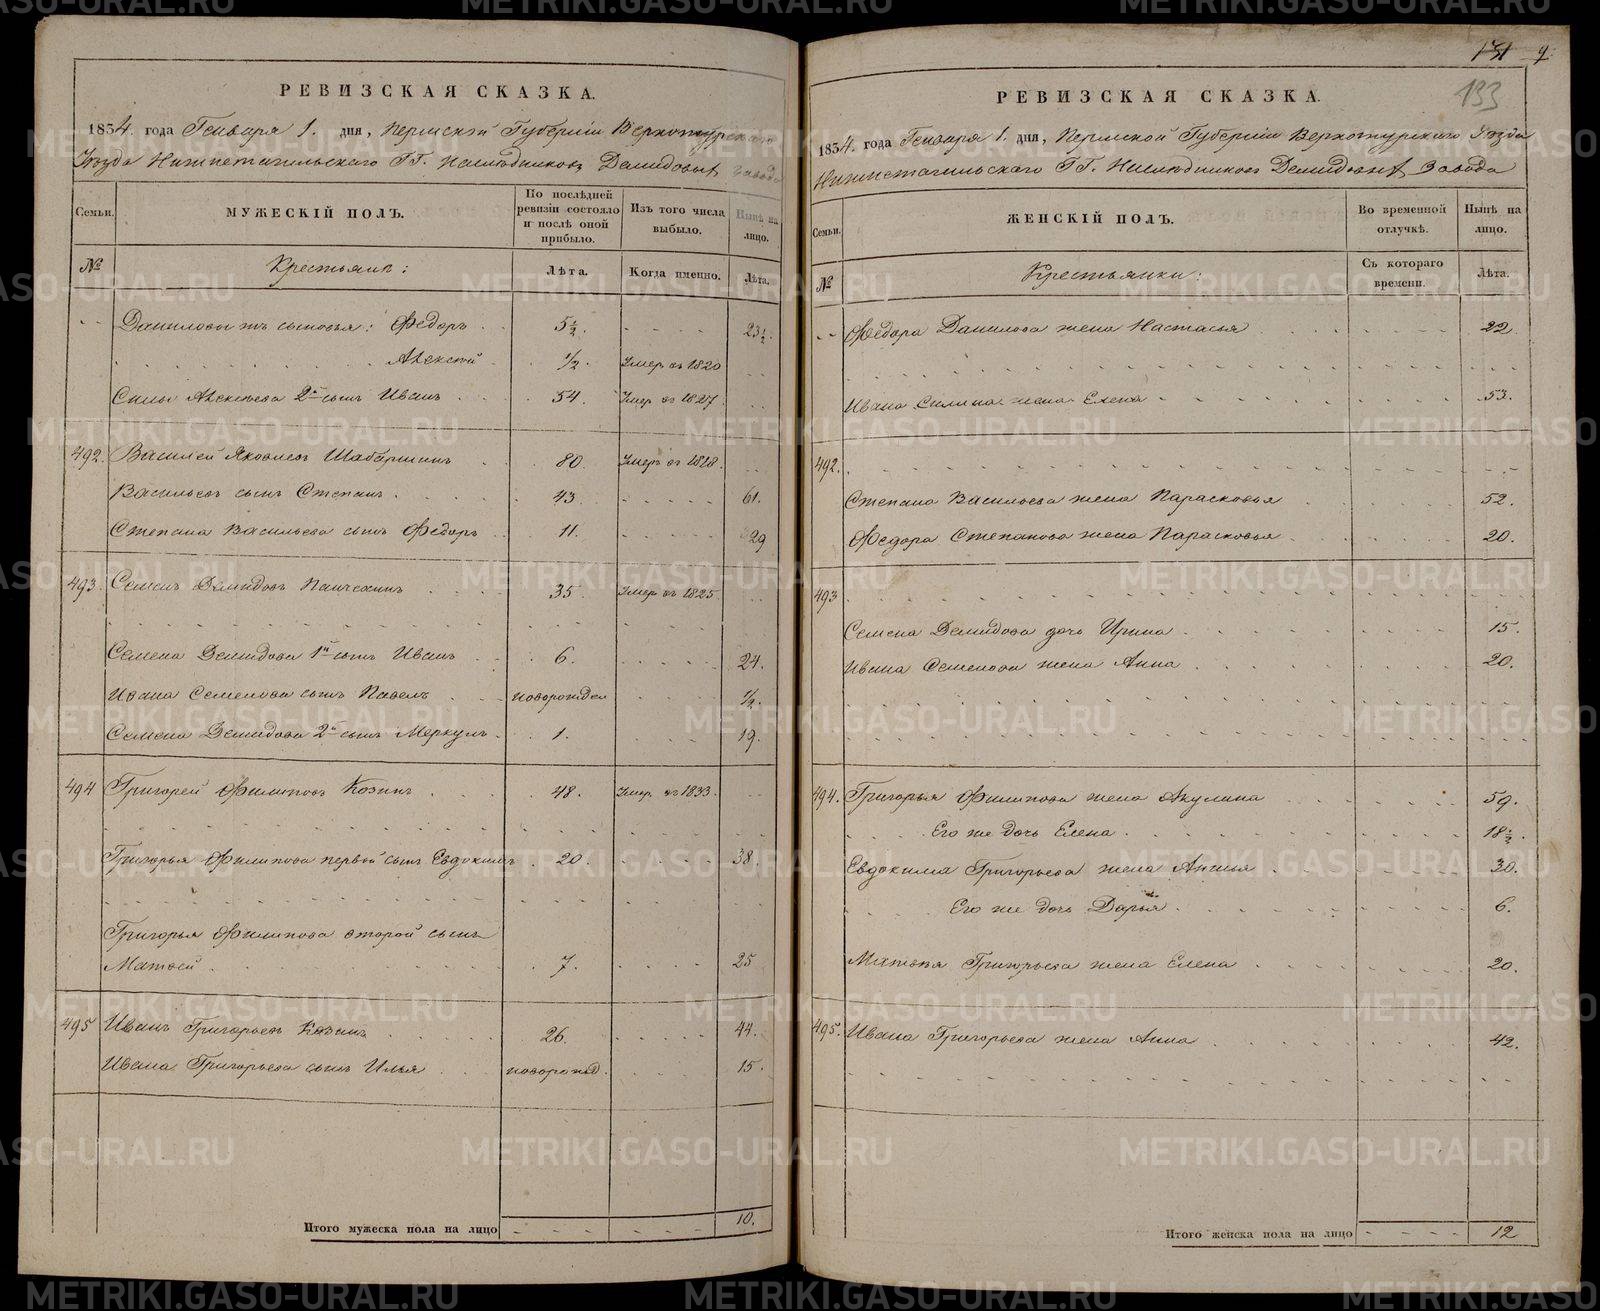 РЕВИЗСКАЯ СКАЗКА.
1834. года Генваря 1. дня, Пермской Губерніи Верхотурскаго
Уезда Нижнетагильского ГГ. Наследников Демидовых завода
Семьи. МУЖЕСКІЙ ПОЛЪ. По послѣдней ревизіи состояло и послѣ оной прибыло. Изъ того числа выбыло. Нынѣ на лицо.
№ Крестьяне: Лѣта. Когда именно. Лѣта.
Даниловы ж сыновья: Федоръ 5½ 23½.
Алексей ½. Умер въ 1820
Силы Алексеева 2й сынъ Иванъ 54. Умер въ 1827.
492. Василей Яковлевъ Шабаршинъ 80. Умеръ въ 1818.
Васильевъ сынъ Степанъ 43. 61.
Степана Васильева сынъ Федоръ 11. 29
493. Семенъ Демидовъ 35. Умер въ 1825.
Семена Демидова 1й сынъ Иванъ 6. 24.
Ивана Семенова сынъ Павелъ новорожден ½.
Семена Демидова 2й сынъ Меркулъ 1. 19.
494 Григорей Филиповъ Козинъ 48. Умер въ 1833.
Григорья Филипова первой сынъ Евдокимъ 20. 38.
Григорья Филипова второй сынъ
Матвей 7. 25
495 Иванъ Григорьевъ Козинъ 26. 44.
Ивана Григорьева сынъ Илья новорожд. 15.
Итого мужеска пола на лицо 10.
9.
133
РЕВИЗСКАЯ СКАЗКА.
1834. года Генваря 1. дня, Пермской Губерніи Верхотурскаго Уезда
Нижнетагильского ГГ. Наследников Демидовых Завода
Семьи. ЖЕНСКІЙ ПОЛЪ. Во временной отлучкѣ. Нынѣ на лицо.
№ Крестьянки: Съ котораго времени. Лѣта.
Федора Данилова жена Настасья 22
Ивана Силина жена Елена 53.
492.
Степана Васильева жена Парасковья 52.
Федора Степанова жена Парасковья 20.
493
Семена Демидова дочь Ирина 15.
Ивана Семенова жена Анна 20.
494. Григорья Филипова жена Акулина 59.
Его же дочь Елена 18½.
Евдокима Григорьева жена 30.
Его же дочь Дарья 6.
Матвея Григорьева жена Елена 20.
495. Ивана Григорьева жена Анна 42.
Итого женска пола на лицо 12
METRIKI.GASO-URAL.RU